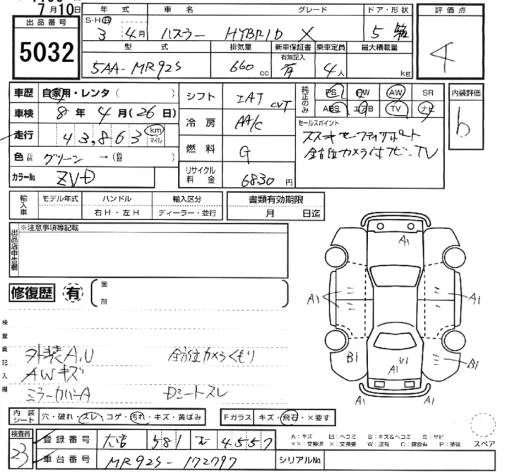 7月10日
出品番号
5032
年式 車名 グレード ドア・形状 評価点
S・H・R
3年4月 ハスラー HYBRID X 5 箱
型式 排気量 新車保証書 乗車定員 最大積載量
有無記入
5AA-MR92S 660cc 有 4人 kg
車歴 自家用・レンタ( )
車検 8年4月(26日)
走行 43,863 km マイル
色 グリーン→(色)
カラーNo. ZVD
シフト IAT CVT
冷房 AA/C
燃料 G
リサイクル料金 6830円
純正のみ PS PW AW SR
ABS エアB TV ナビ
セールスポイント
スズキセーフティサポート
全方位カメラ付ナビ・TV
内装評価
b
輸入車 モデル年式 ハンドル 輸入区分
年 右H・左H ディーラー・並行
書類有効期限
月 日迄
出品店申告欄
※注意事項等記載
修復歴 有
箇所
検査員記入欄
外装A,U 全方位カメラくもり
AWキズ
ミラーカバーA Dシートスレ
A1
A1
A1
B1
B1
A1
内装シート 穴・破れ・スレ・コゲ・汚れ・キズ・黄ばみ
Fガラス キズ・飛石・X要す
スペア
検査員 23
登録番号
車台番号 MR92S-172797
シリアルNo.